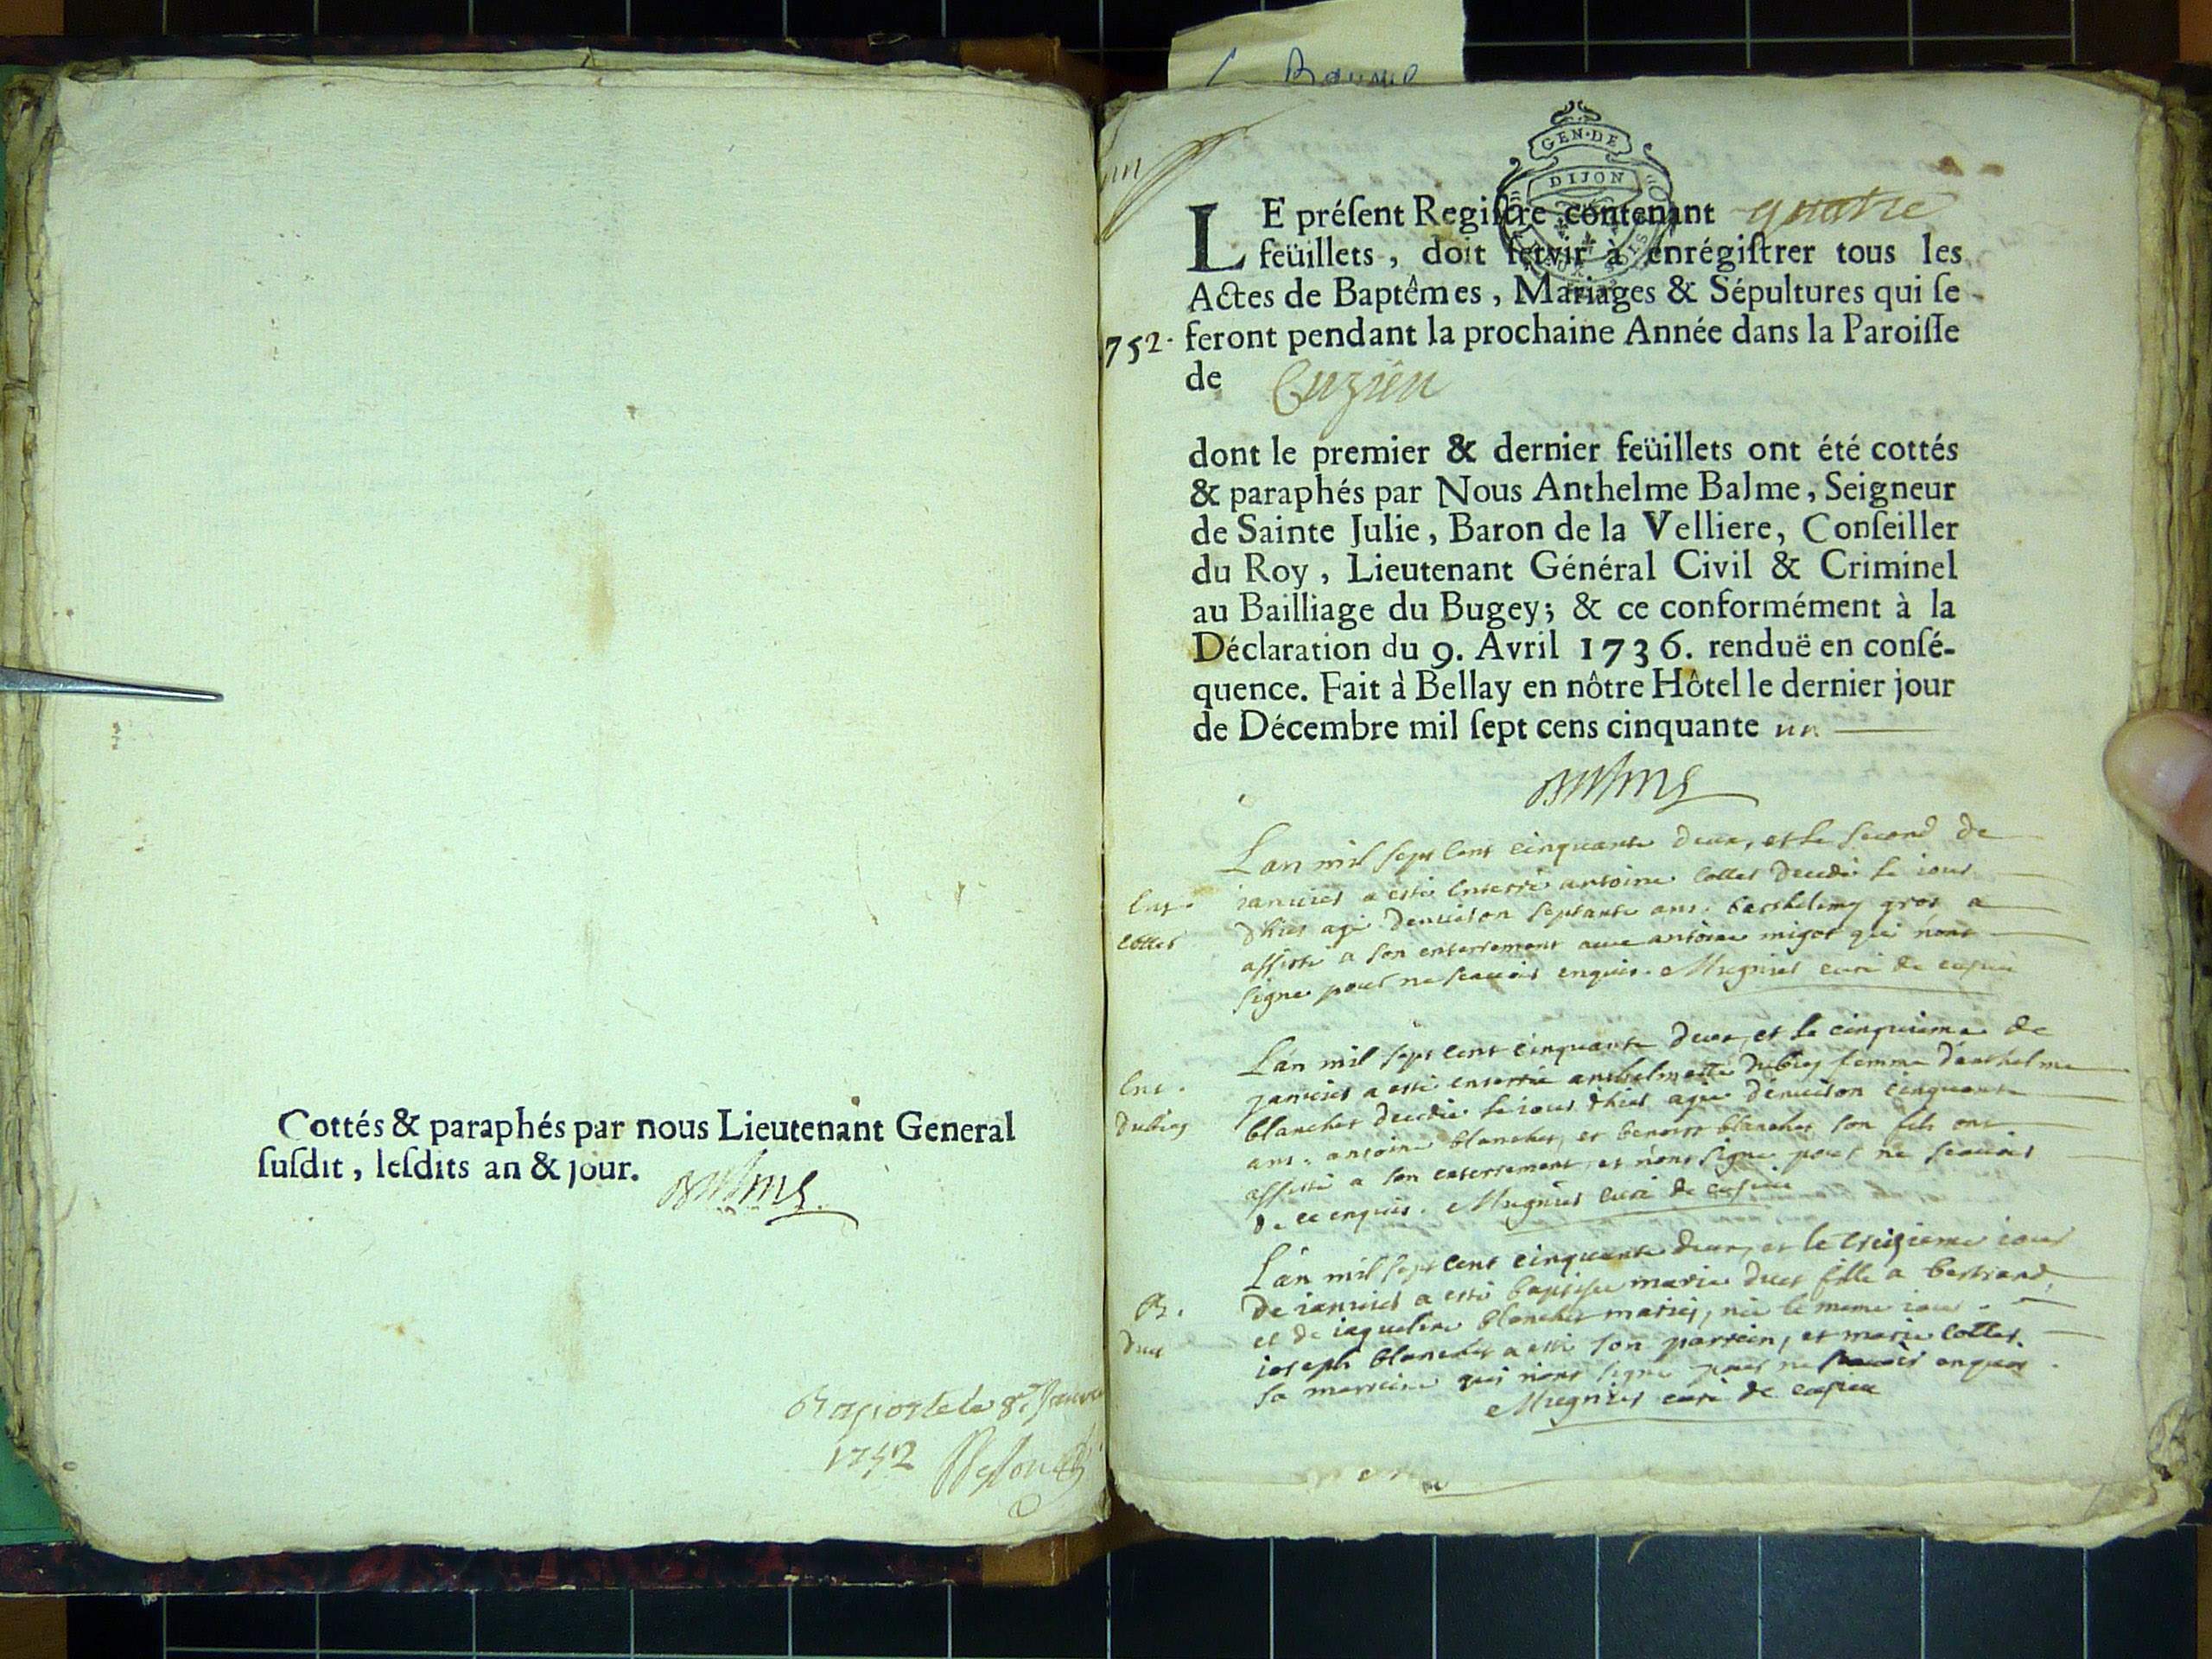 Cottés & paraphés par nous Lieutenant General
susdit, lesdits an & jour.
Raporté le 8e Janvier
1752
GEN·DE
DIJON
LE présent Registre contenant quatre
feüillets, doit servir à enrégistrer tous les
Actes de Baptêmes, Mariages & Sépultures qui se
feront pendant la prochaine Année dans la Paroisse
752.
de Cuzieu
dont le premier & dernier feüillets ont été cottés
& paraphés par Nous Anthelme Balme, Seigneur
de Sainte Julie, Baron de la Velliere, Conseiller
du Roy, Lieutenant Général Civil & Criminel
au Bailliage du Bugey; & ce conformément à la
Déclaration du 9. Avril 1736. renduë en consé-
quence. Fait à Bellay en nôtre Hôtel le dernier jour
de Décembre mil sept cens cinquante un
Balme
Ent.
Collet
L'an mil sept cent cinquante deux, et le second de
ianvier a esté enterré antoine Collet decedé le iour
d'hier agé d'environ septante ans. barthelemy gros a
assisté a son enterrement avec antoine migot qui n'ont
signe pour ne scavoir enquis. Mugnier curé de cusieu
Ent.
Dubieg
L'an mil sept cent cinquante deux, et le cinquieme de
janvier a esté enterrée anthelmette Dubieg femme d'anthelme
blanchet decedée le iour d'hier agée d'environ cinquante
ans. antoine blanchet, et benoist blanchet son fils ont
assisté a son enterrement, et n'ont signe pour ne scavoir
de ce enquis. Mugnier curé de cusieu
B.
Duet
L'an mil sept cent cinquante deux, et le treizieme iour
de ianvier a esté baptisée marie Duet fille a bertrand,
et de iaqueline blanchet mariez, née le meme iour.
ioseph blanchet a esté son parrein, et marie Collet
sa marreine qui n'ont signe pour ne scavoir enquis.
Mugnier curé de cusieu